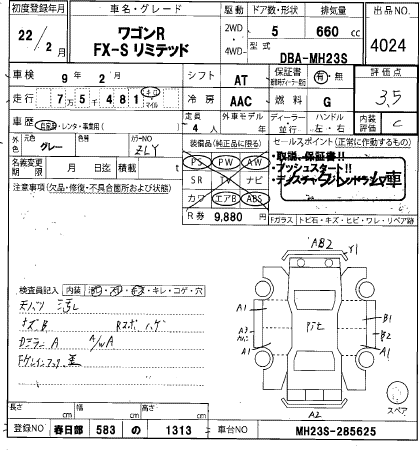 初度登録年月 車名・グレード 駆動 ドア数・形状 排気量 出品NO.
22/2月 ワゴンR FX-S リミテッド 2WD・4WD- 5 660 cc 4024
型式 DBA-MH23S
車検 9年 2月 シフト AT 保証書 有・無 評価点 3.5
走行 7万5千481 キロ マイル 冷房 AAC 燃料 G 内装評価 C
車歴 自家用・レンタ・事業用( ) 定員 4人 外車モデル ディーラー・並行 ハンドル 左・右
外色 元色 グレー カラーNO ZLY 装備品(純正品に限る) セールスポイント(正常に作動するもの)
名義変更期限 月 日迄 積載 t PS PW AW ・取説、保証書!!
注意事項(欠品・修復・不具合箇所および状態) SR TV ナビ ・プッシュスタート!!
カワ エアB ABS
R券 9,880円
Fガラス トビ石・キズ・ヒビ・ワレ・リペア跡
検査員記入 内装 キレ・コゲ・穴
AB2
Y1
A1 B1
PTと B2
A1 A1
A2
スペア
キズB
A A/WA
長さ cm 幅 cm 高さ cm
登録NO 春日部 583 の 1313 車台NO MH23S-285625